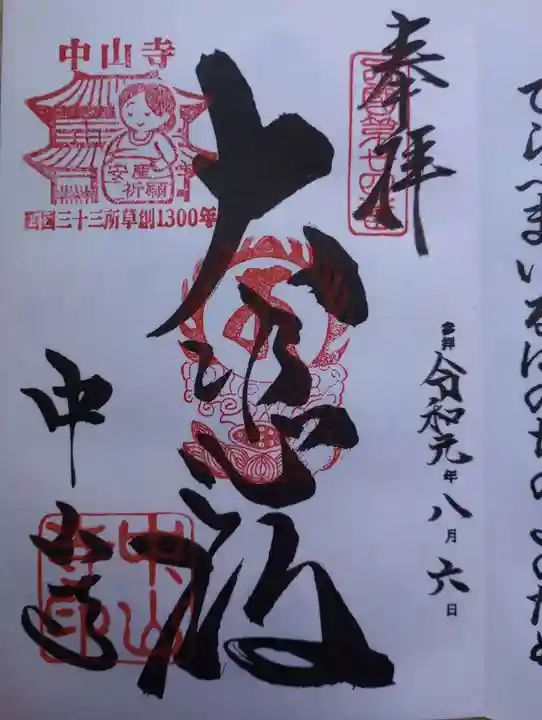 でらへまいるはのちのよのため
奉拝
西国第廿四番
参拝 令和元年八月六日
大悲殿
中山寺
安産
祈願
西国三十三所草創1300年
中山寺
中山寺印